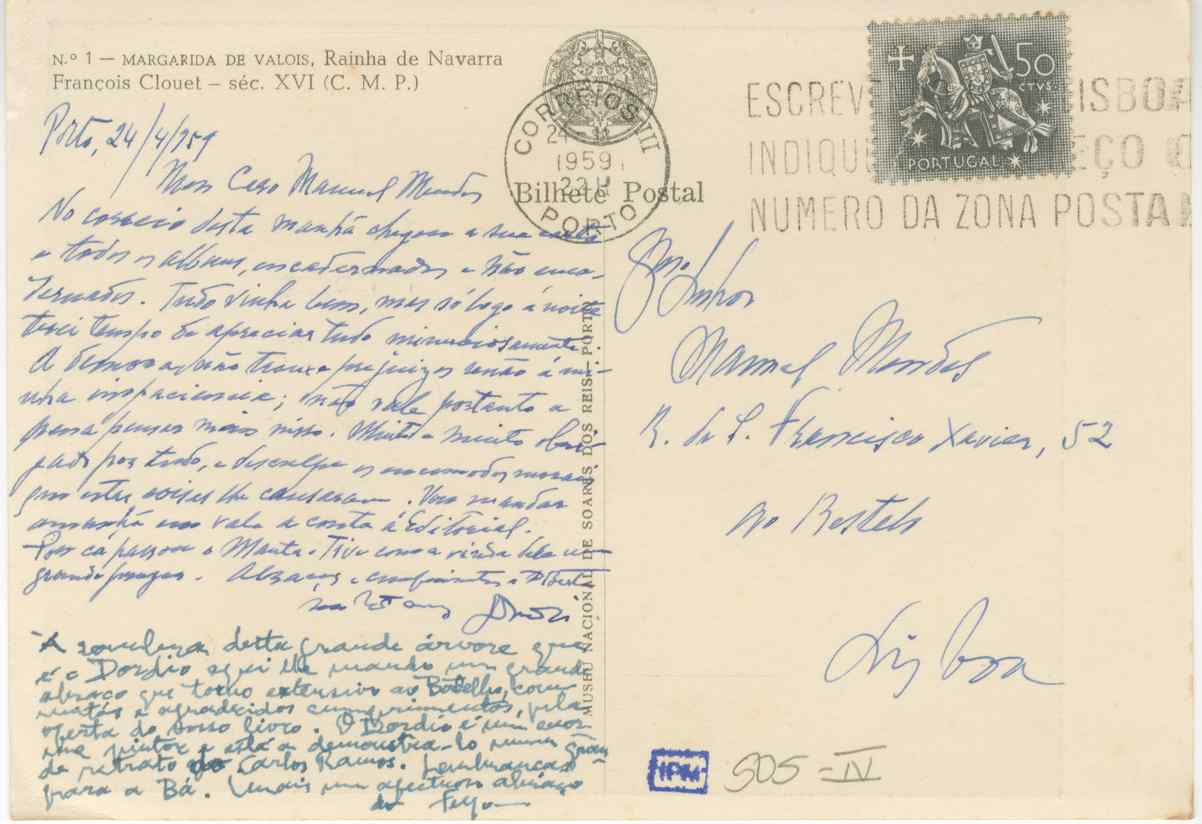 N.º 1 — MARGARIDA DE VALOIS, Rainha de Navarra
François Clouet — séc. XVI (C. M. P.)
Porto, 24/4/959
Meu Caro Manuel Mendes
No correio desta manhã chegou a sua carta
e todos os albuns, encadernados e não enca-
dernados. Tudo vinha bem, mas só logo à noite
terei tempo de apreciar tudo minuciosamente.
A demora não trouxe prejuizos senão à mi-
nha impaciencia; não vale portanto a
pena pensar mais nisso. Muito e muito obri-
gado por tudo, e desculpe os encomodos
que estas coisas lhe causaram. Vou mandar
amanhã em vale a conta à Editorial.
Por cá passou o Manta. Tive com a vinda dele um
grande prazer. Abraços e cumprimentos
Dordio
A sombra desta grande árvore que
é o Dordio aqui lhe mando um grande
abraço que torno extensivo ao Botelho, com
muitos e agradecidos cumprimentos, pela
oferta do nosso livro. O Dordio é um enor-
me pintor e está a demonstra-lo num gran-
de retrato do Carlos Ramos. Lembranças
para a Bá. E mais um afectuoso abraço
do
MUSEU NACIONAL DE SOARES DOS REIS — PORTO
CORREIOS
24
1959
22H
PORTO
Bilhete Postal
ESCREV ISBOA
INDIQU EÇO O
NUMERO DA ZONA POSTA
50
CTVS.
PORTUGAL
Exmo. Senhor
Manuel Mendes
R. de S. Francisco Xavier, 52
ao Restelo
Lisboa
IPM
505 - IV